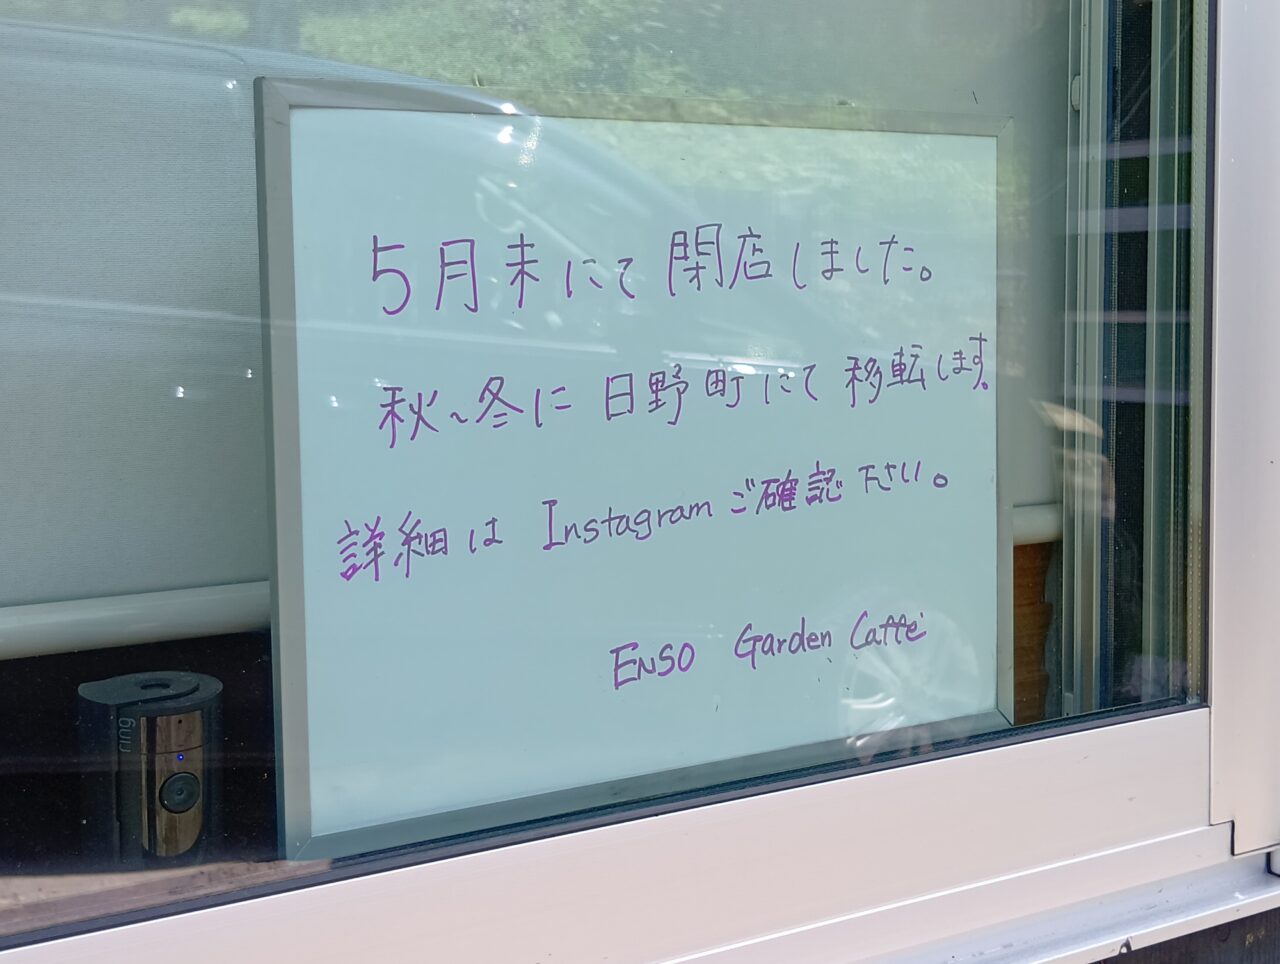 5月末にて閉店しました。
秋~冬に日野町にて移転します。
詳細は Instagram ご確認下さい。
ENSO Garden Caffé
ring